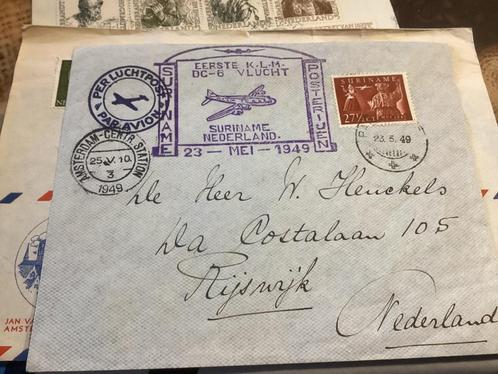 NEDERLANDS
PER LUCHTPOST
PAR AVION
SURINAME
EERSTE K.L.M.
DC-6 VLUCHT
SURINAME
NEDERLAND.
POSTERIJEN
23 - MEI - 1949
SURINAME
27½ CT
AMSTERDAM-CENTR. STATION
25.V.10.
3
1949
23.5.49
De Heer W. Henckels
Da Costalaan 105
Rijswijk
Nederland
JAN VA
AMSTE